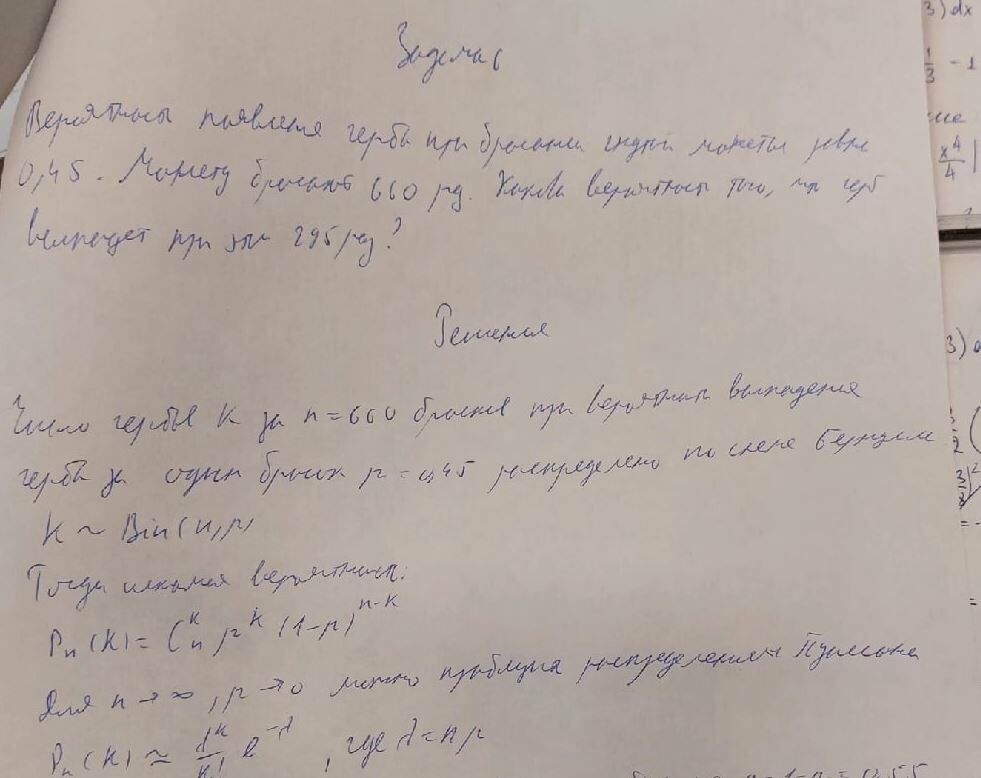 Задача 6
Вероятность появления герба при бросании монеты равна
0,45. Монету бросают 660 раз. Какова вероятность того, что герб
выпадет при этом 295 раз?
Решение
Число гербов K за n=660 бросков при вероятности выпадения
герба за один бросок p=0,45 распределено по схеме Бернулли
K ~ Bin(n,p)
Тогда искомая вероятность:
Pₙ(K) = Cₙᵏ pᵏ (1-p)ⁿ⁻ᵏ
Для n→∞, p→0 можно распределением Пуассона
Pₙ(K) ≈ λᵏ/k! e^-λ, где λ=np
3) dx
1/3 - 1
x⁴/4 |
3)